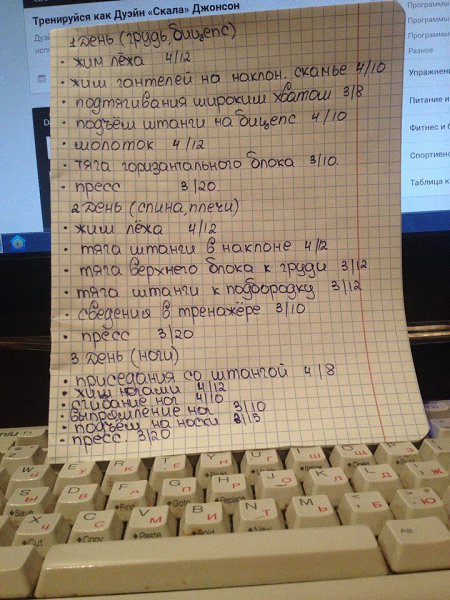 Тренируйся как Дуэйн «Скала» Джонсон
Программы
Программы
Программы
Разное
Упражнени
Питание и
Фитнес и б
Спортивно
Таблица к
1 День (грудь, бицепс)
• жим лёжа 4/12
• жим гантелей на наклон. скамье 4/10
• подтягивания широким хватом 3/8
• подъём штанги на бицепс 4/10
• молоток 4/12
• тяга горизантального блока 3/10.
• пресс 3/20.
2 День (спина, плечи)
• жим лёжа 4/12
• тяга штанги в наклоне 4/12
• тяга верхнего блока к груди 3/12
• тяга штанги к подбородку 3/12
• сведения в тренажёре 3/10
• пресс 3/20
3 День (ноги)
• приседания со штангой 4/8
• жим ногами 4/12
• сгибание ног 4/10
• выпрямление ног 3/10
• подъём на носки 3/15
• пресс 3/20
W Ц E У R К T Е Y Н
S Ы D В F А G П H Р
Save Find Goto Replace
X Ч C С V М B И N Т M Ь Б Ю Ж
Cut Copy Paste Bold New
Alt